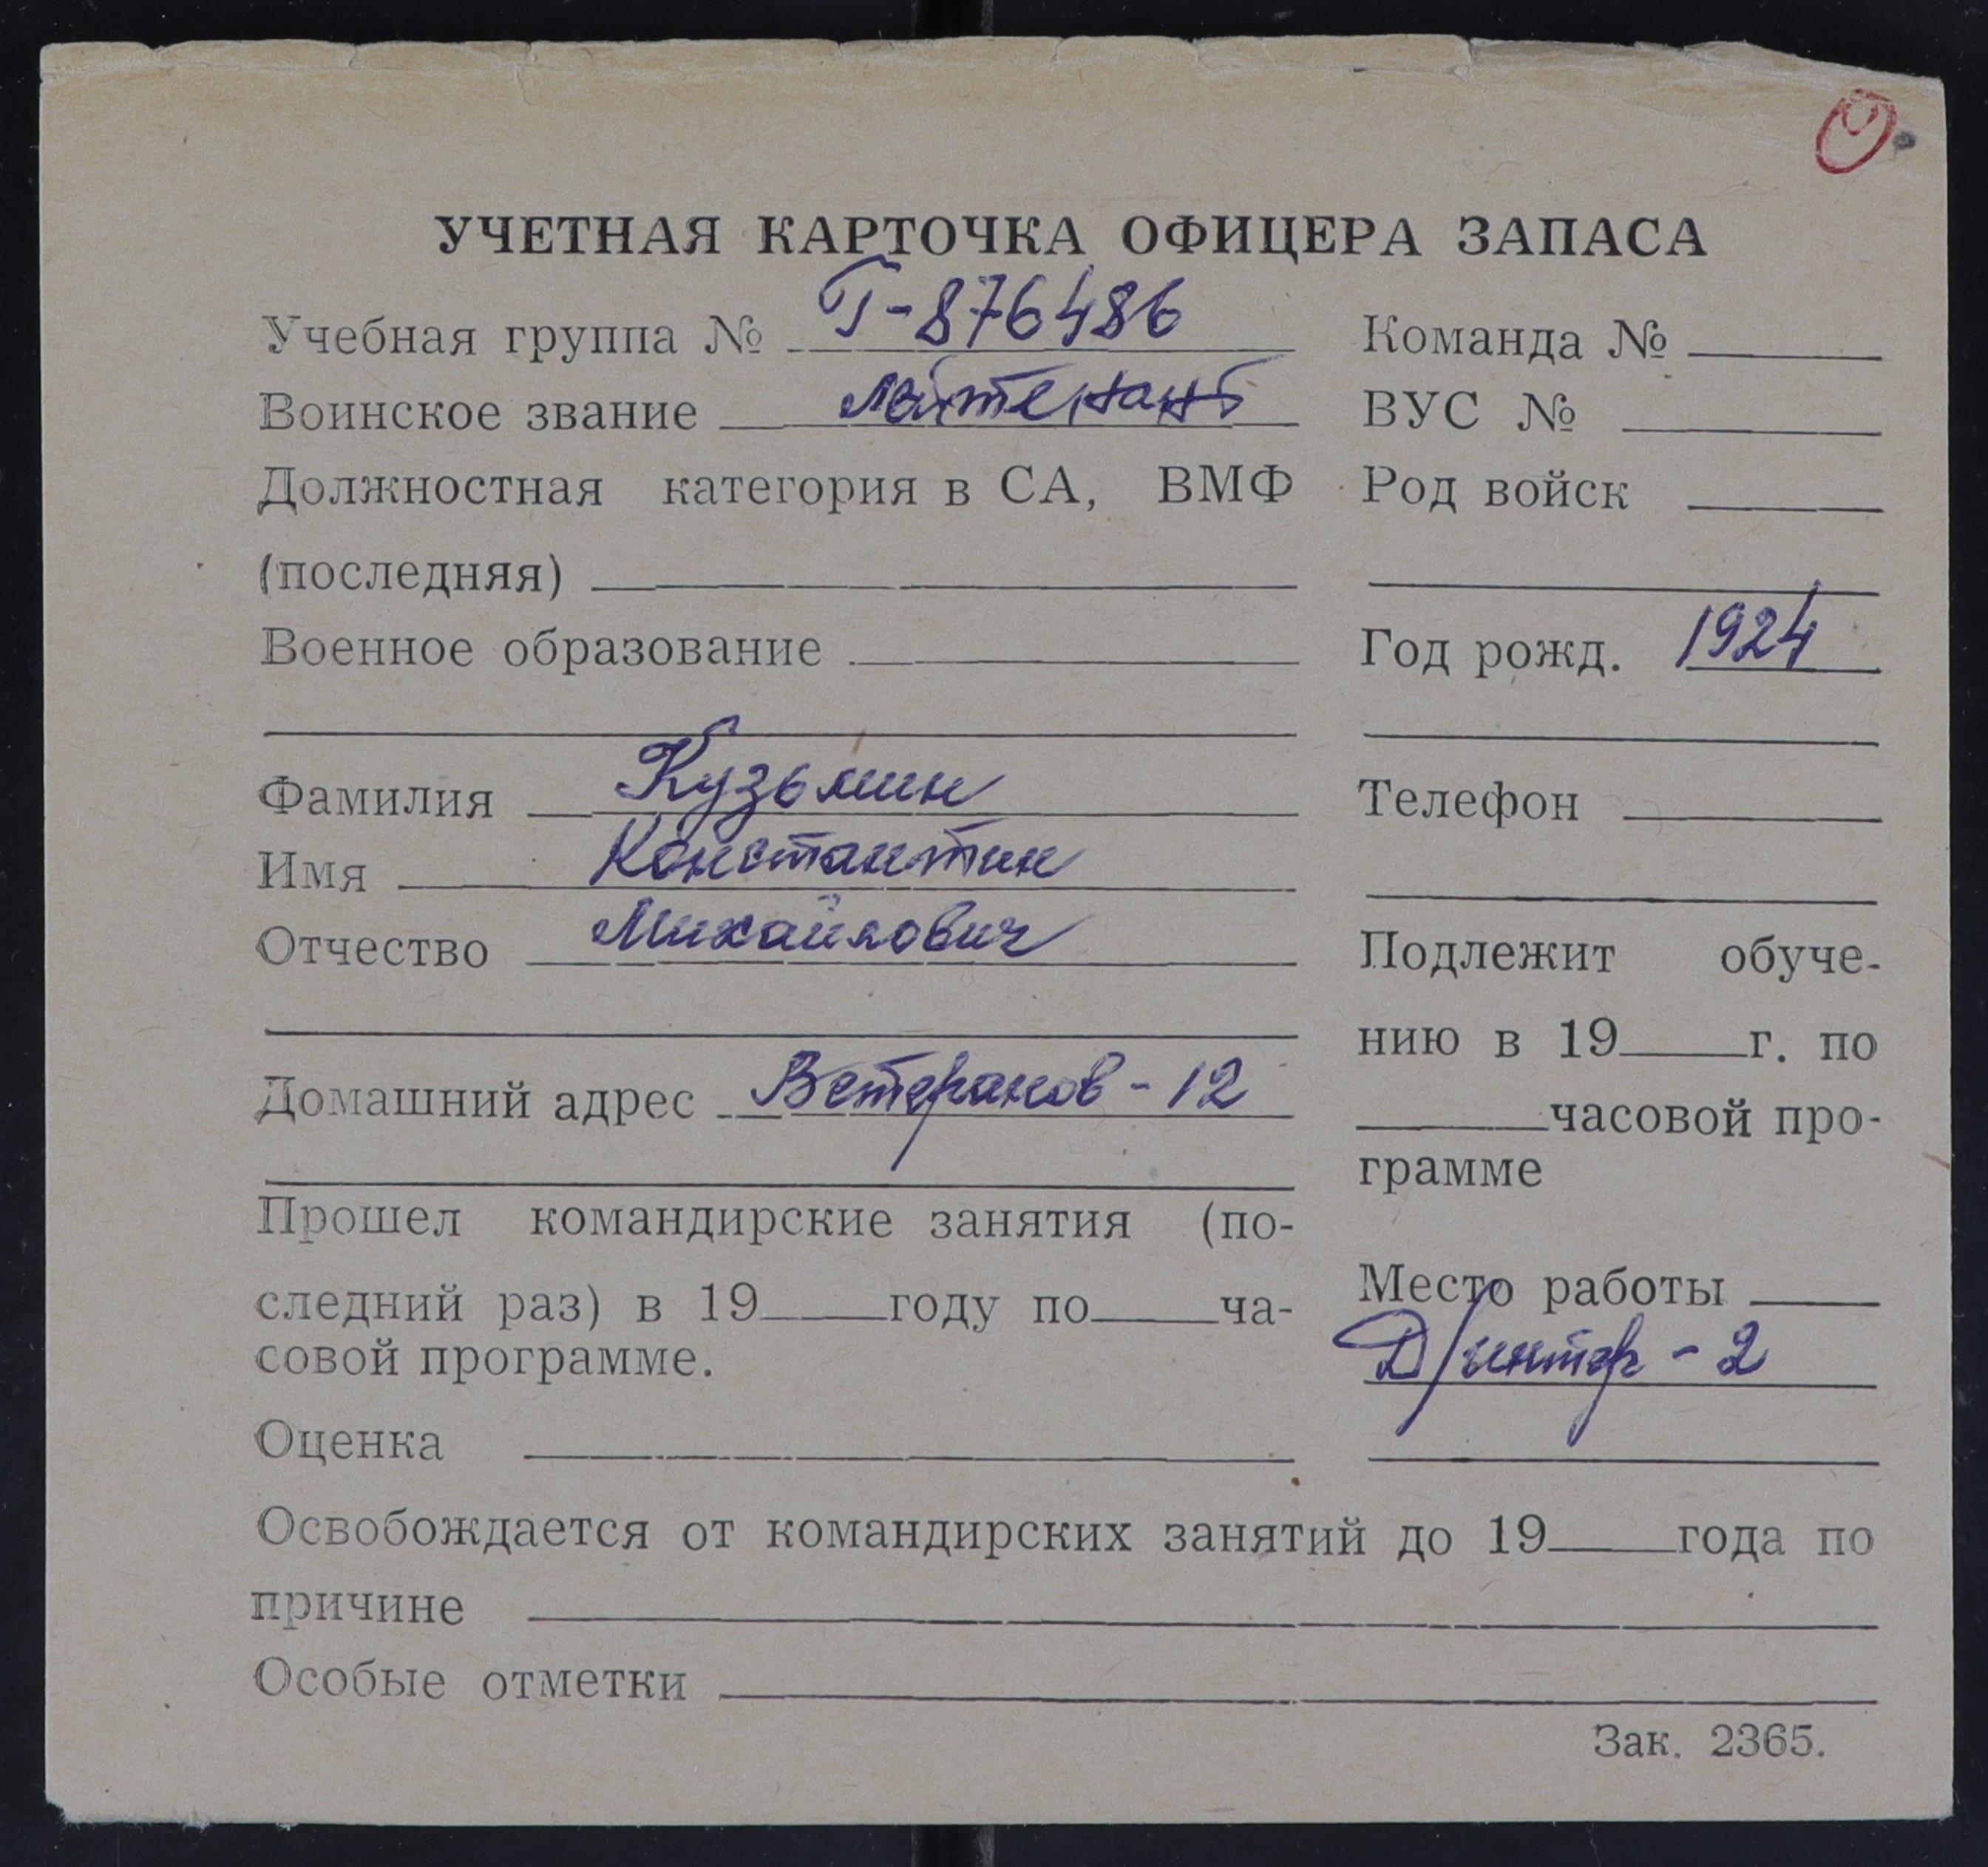 УЧЕТНАЯ КАРТОЧКА ОФИЦЕРА ЗАПАСА
Учебная группа № Г-876486
Воинское звание лейтенант
Должностная категория в СА, ВМФ
(последняя)
Военное образование
Фамилия Кузьмин
Имя Константин
Отчество Михайлович
Домашний адрес Ветеранов - 12
Прошел командирские занятия (по-
следний раз) в 19 году по ча-
совой программе.
Оценка
Команда №
ВУС №
Род войск
Год рожд. 1924
Телефон
Подлежит обуче-
нию в 19 г. по
часовой про-
грамме
Место работы
Д/интер - 2
Освобождается от командирских занятий до 19 года по
причине
Особые отметки
Зак. 2365.